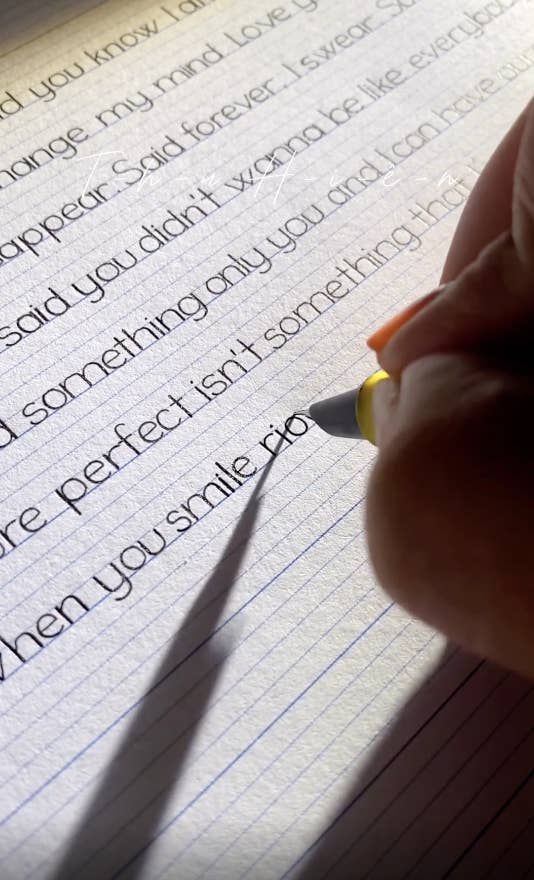 you know I
my mind Love
appear. Said forever. I swear
T-h-u H-i-e-n
said you didn't wanna be like everybo
something only you and I can have
perfect isn't something that
when you smile rig